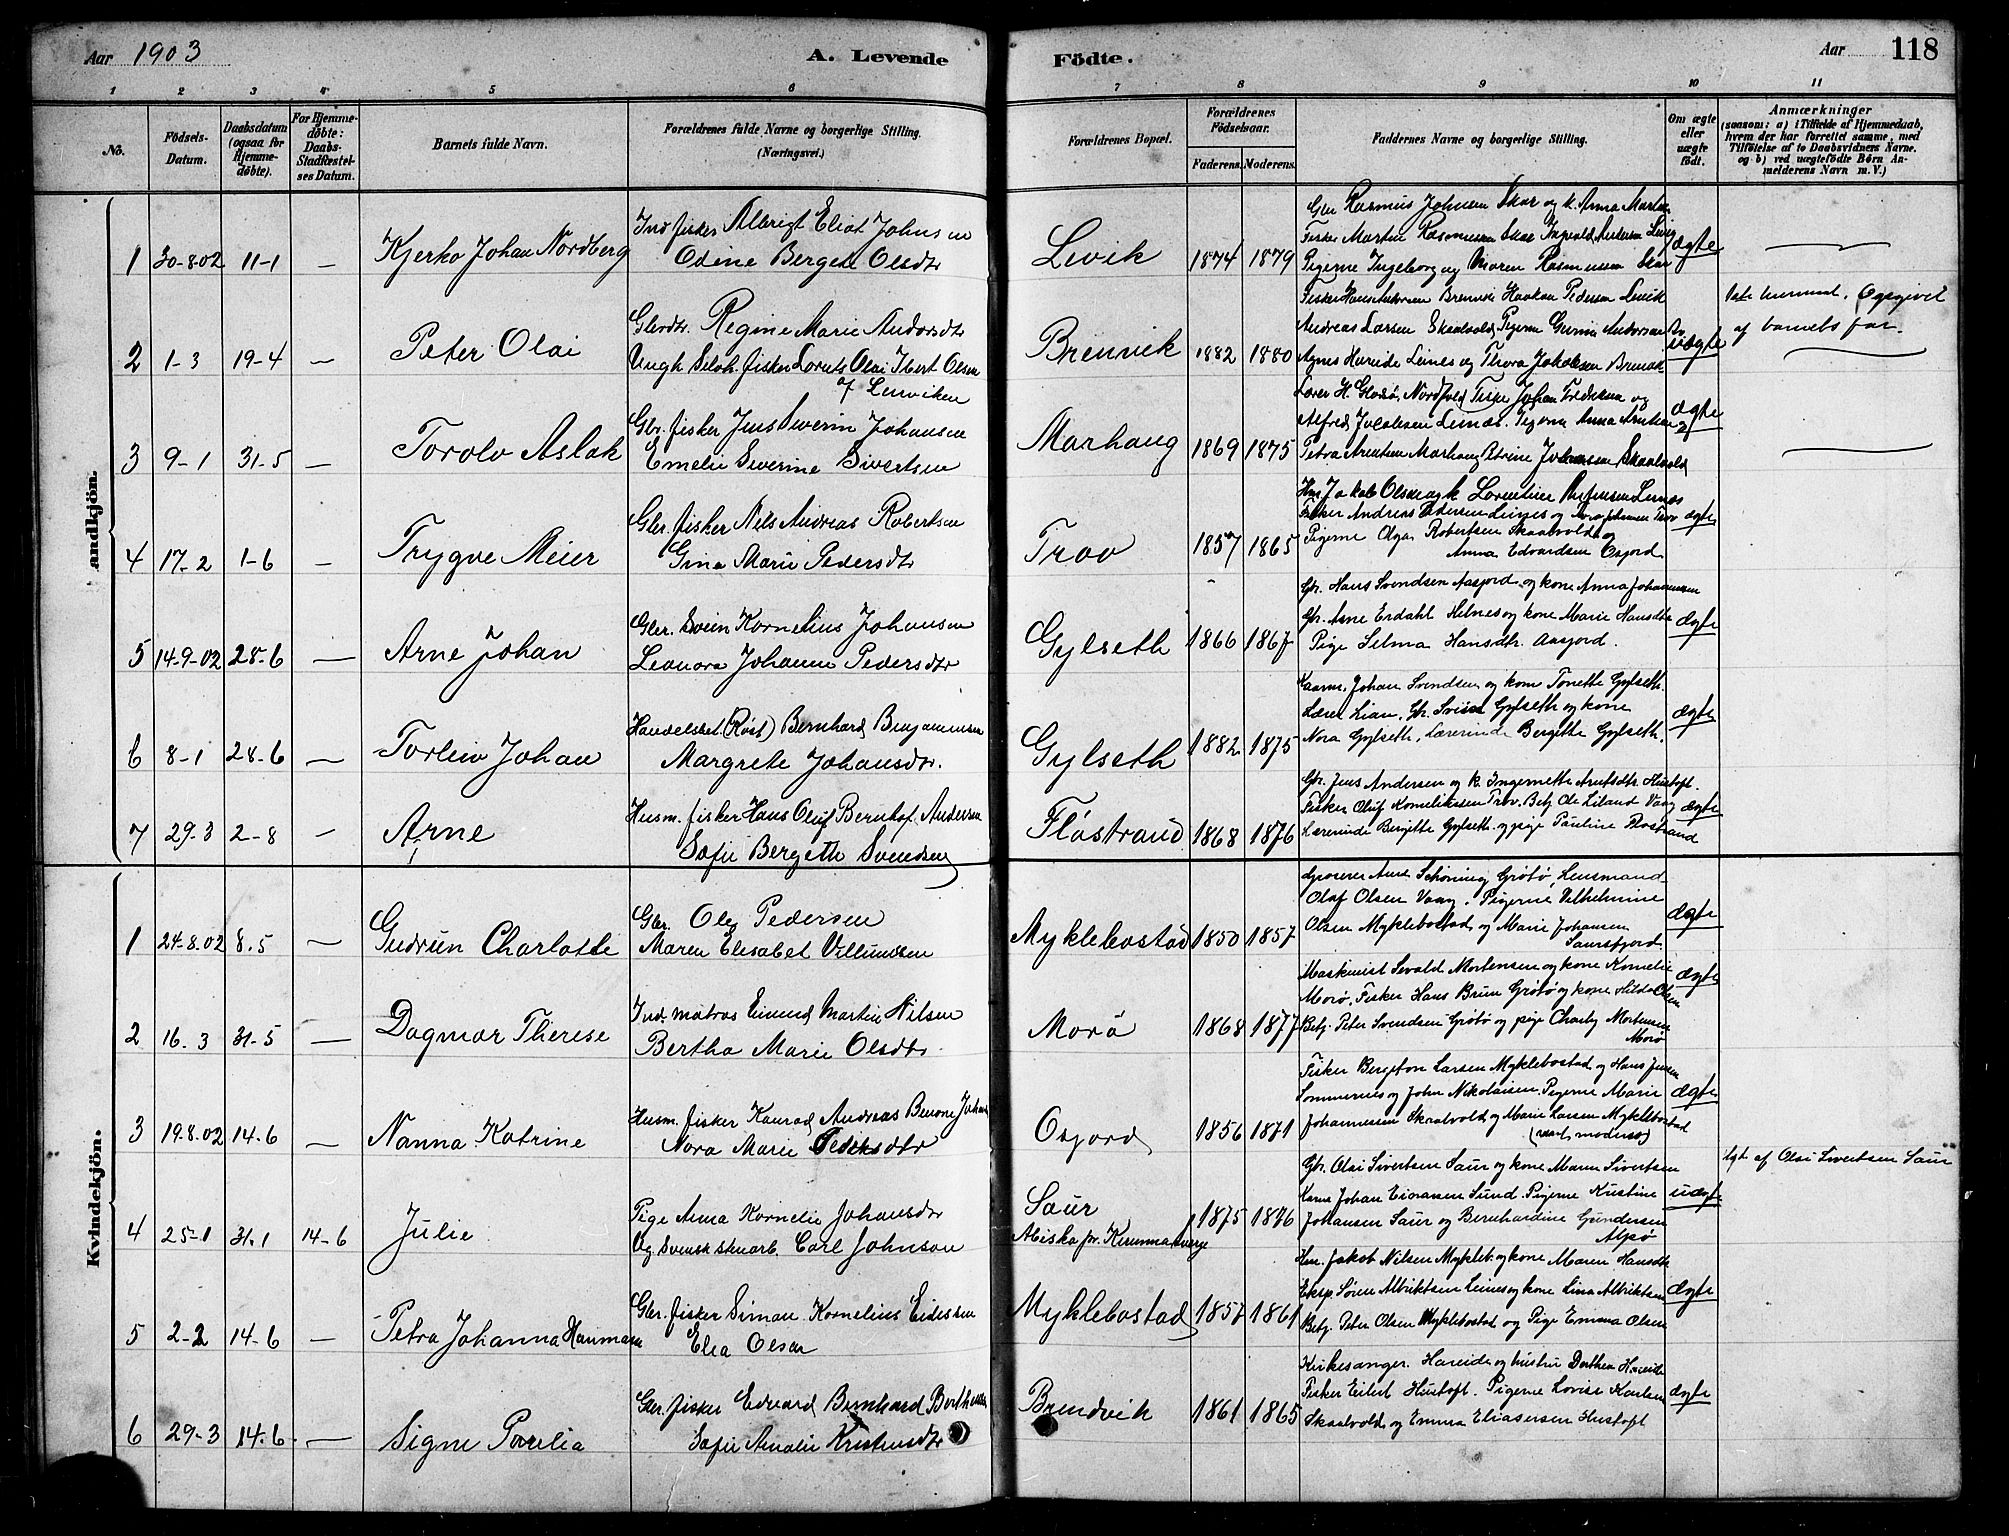 Aar 1903
A. Levende
Födte.
Aar
118
1 2 3 4 5 6 7 8 9 10 11
No.
Födsels-
Datum.
Daabsdatum
(ogsaa för
Hjemme-
döbte).
For Hjemme-
döbte:
Daabs-
Stadfæstel-
ses Datum.
Barnets fulde Navn.
Forældrenes fulde Navne og borgerlige Stilling.
(Næringsvei.)
Forældrenes Bopæl.
Forældrenes
Födselsaar.
Faderens. Moderens.
Faddernes Navne og borgerlige Stilling.
Om ægte
eller
uægte
födt.
Anmærkninger
(saasom: a) i Tilfælde af Hjemmedaab,
hvem der har forrettet samme, med
Tilföielse af to Daabsvidners Navne.
og b) ved uægtefödte Börn An-
melderens Navn m. V.)
andkjön.
1 30-8.02 11-1 — Kjerko Johan Nordberg
Ind fisker Albrigt Eliot Johnsen
Odine Bergete Olsdtr
Levik 1874 1879
Gbr Rasmus Johnsen Skar og k. Anna Martin
Fisker Martin Rasmussen Skar Ingvald Andersen Levig
Pigerne Ingeborg og Maren Rasmussen Skar
ægte
2 1-3 19-4 — Peter Olai
Gbrdtr. Regine Marie Andersdtr
Ungk. Selvh. fisker Lorents Olai Ibert Olsen
af Lervikен
Brenvik 1882 1880
Fisker Hans Andersen Brenvik Haakon Pedersen Levik
Andreas Larsen Skaalvold, Pigerne Gurine Andersen
Agnes Hareide Leines og Thora Jakobsen Brenvik
uægte
Opgivet
af barnets far.
3 9-1 31-5 — Torolv Aslak
Gbr. fisker Jens Severin Johansen
Emelie Severine Sivertsen
Marhaug 1869 1875
Lærer H. Glads, Nordfold, Fisker Johan Fredriksen og
Alfred Jacobsen Leines. Pigerne Anna Arntsen
Petra Arntsen Marhaug Petrine Johansen Skaalvold
ægte
4 17-2 1-6 — Trygve Meier
Gbr. fisker Nils Andreas Robertsen
Gina Marie Pedersdtr
Trov 1857 1865
Jakob Olsen og k. Lorentine
Fisker Andreas Pedersen Leines og Trov
Pigerne Olga Robertsen Skaalvold og
Anna Edvardsen Osjord
ægte
5 14-9-02 28-6 — Arne Johan
Gbr. Svein Kornelius Johansen
Leonora Johanne Pedersdtr
Gylseth 1866 1867
Gbr. Hans Svendsen Aasjord og kone Anna Johannesen
Gbr. Arne Erdahl Helnes og kone Marie Hansdtr
Pige Selma Hansdtr. Aasjord.
ægte
6 8-1 28-6 — Torlein Johan
Handelsbet. (Röst) Bernhard Benjaminsen
Margrete Johansdtr.
Gylseth 1882 1875
Kaarm. Johan Svendsen og kone Tonette Gylseth.
Lærer Lian, Gbr. Svein Gylseth og kone
Nora Gylseth, Lærerinde Bergitte Gylseth.
ægte
7 29-3 2-8 — Arne
Husm. fisker Hans Oluf Bernhof. Andersen
Sofie Bergeth Svendsen
Flöstrand 1868 1876
Gbr. Jens Andersen og k. Ingernette Arntsdtr. Hustoft.
Fisker Oluf Korneliussen Trov. Betj. Ole Liland Vaag
Lærerinde Bergitte Gylseth. og pige Pauline Flostrand
ægte
Kvindekjön.
1 24-8.02 8.5 — Gudrun Charlotte
Gbr. Ole Pedersen
Maren Elisabet Villumsen
Myklebostad 1850 1857
Schöning Grötö, Lensmand
Olaf Olsen Vaag. Pigerne Vilhelmine
Olsen Myklebostad og Marie Johansen
Saursfjord.
ægte
2 16.3 31-5 — Dagmar Therese
Ind. matros Eivind Martin Nilsen
Bertha Marie Olsdtr.
Morö 1868 1877
Maskinist Sevald Mortensen og kone Kornelie
Morö, Fisker Hans Bruun Grötö og kone Hilda Olsen
Betj. Peter Svendsen Grötö og pige Charly Mortensen
Morö
ægte
3 19.8.02 14.6 — Nanna Katrine
Husm. fisker Konrad Andreas Benoni Johans
Nora Marie Pedersdtr
Osjord 1856 1871
Fisker Bergeton Larsen Myklebostad og Hans Jensen
Sommernes og John Nikolaisen. Pigerne Marie
Johannessen Skaalvold og Marie Larsen Myklebostad
ægte
4 25-1 31.1 14-6 Julie
Pige Anna Kornelie Johansdtr
Ug. Svensk stenarb. Carl Johnson
Saur
Abisko pr. Kirunna Sverge
1875 1876
Gbr. Olai Sivertsen Saur og kone Maren Sivertsen
Johan Eioransen Sund. Pigerne Kristine
Johansen Saur og Bernhardine Gundersen
Alpö
uægte
af Olai Sivertsen Saur
5 2-2 14-6 — Petra Johanna Hanmann
Gbr. fisker Simon Kornelius Eidissen
Elea Olsen
Myklebostad 1857 1861
Hm. Jakob Nilsen Mykleb. og kone Maren Hansdtr
Eksp. Sören Albriktsen Leines og kone Lina Albriktsen
Betj. Peter Olsen Myklebostad og Pige Emma Olsen
ægte
6 29-3 14.6 — Signe Paulia
Gbr. fisker Edvard Bernhard Berthe
Sofie Amalie Kristensdtr
Brendvik 1861 1865
Kirkesanger. Hareide og hustru Dorthea Hareide
Fisker Eilert Hustoft. Pigerne Lovise Karlsen
Skaalvold og Emma Eliasersen Hustoft
ægte